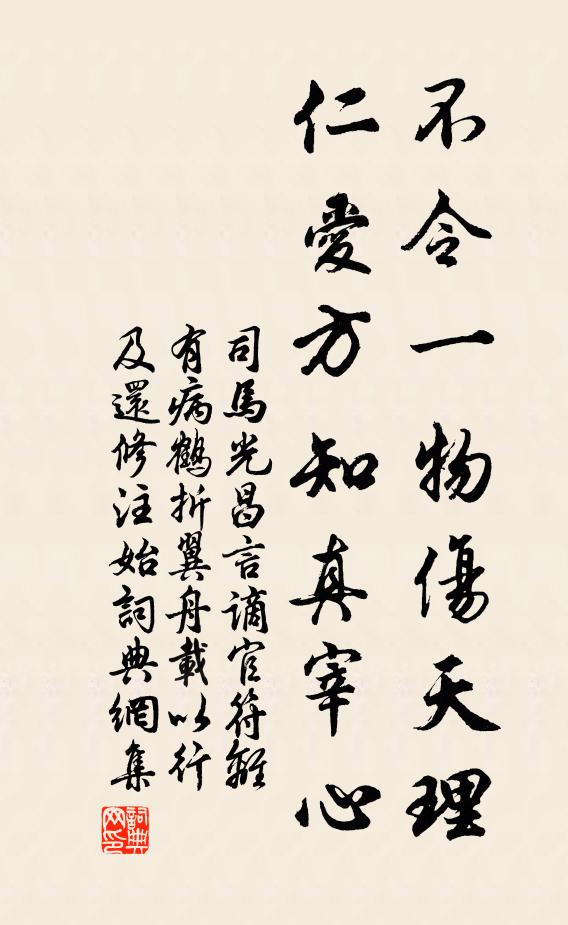 不令一物傷天理
仁愛方知真宰心
司馬光昌言謫官符離
有病鶴折翼舟載以行
及還修注始詞典網集
詞典
网印